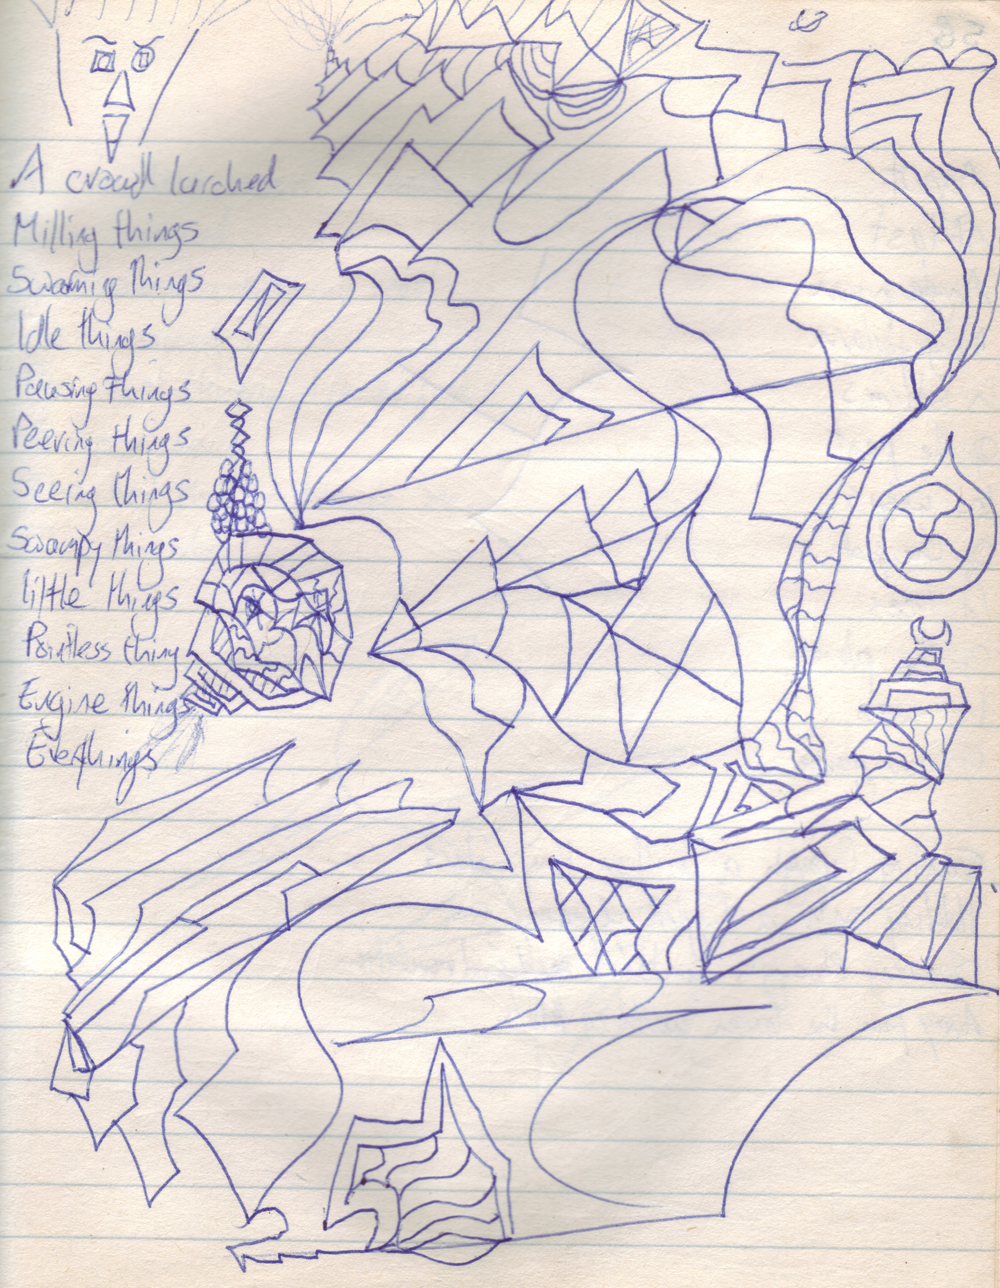 A crowd lurched
Milling things
Swarming things
Idle things
Pausing things
Peering things
Seeing things
Swampy things
little things
Pointless thing
Engine things
Everthings